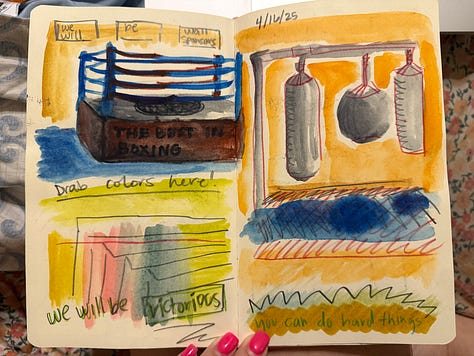 we will
be
wall sponsors
THE BEST IN
BOXING
Drab colors here!
we will be victorious
4/16/25
you can do hard things